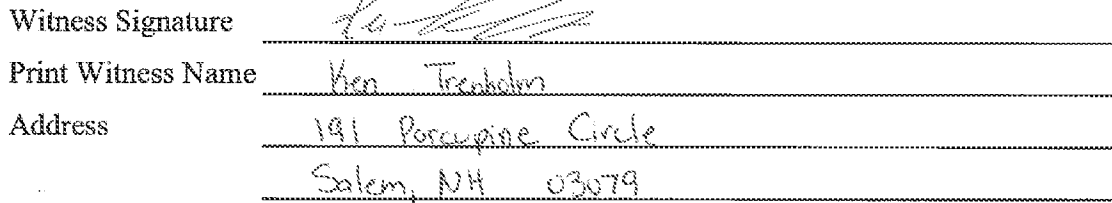 Witness Signature
Print Witness Name Ken Trenholm
Address 191 Porcupine Circle
Salem, NH 03079